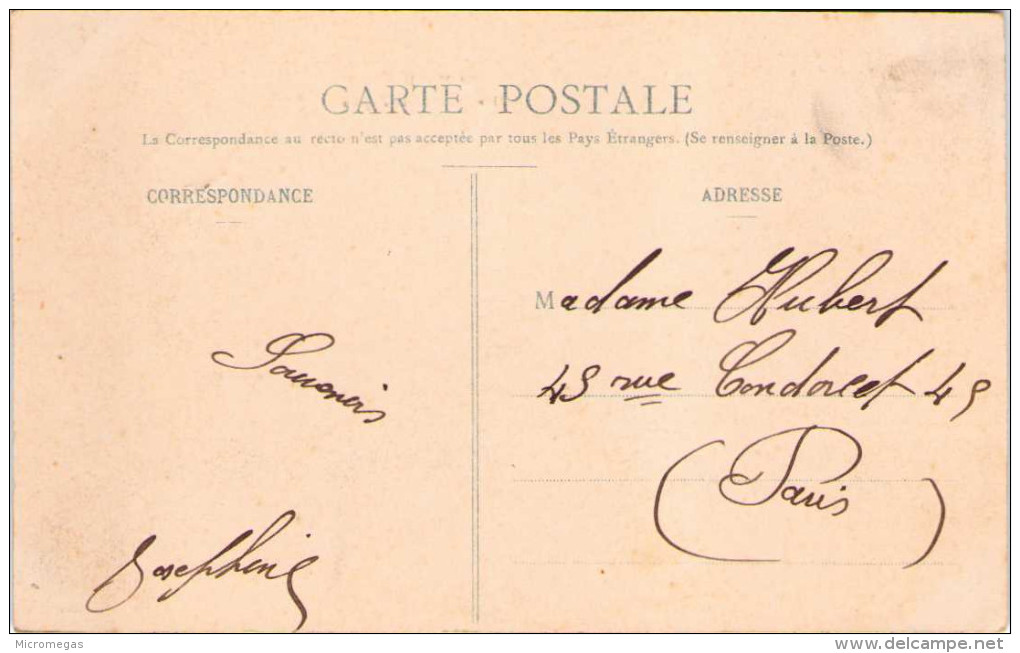 CARTE POSTALE
La Correspondance au recto n'est pas acceptée par tous les Pays Étrangers. (Se renseigner à la Poste.)
CORRESPONDANCE
Souvenir
Josephine
ADRESSE
Madame Hubert
45 rue Condorcet 45
(Paris)
Micromegas
www.delcampe.net